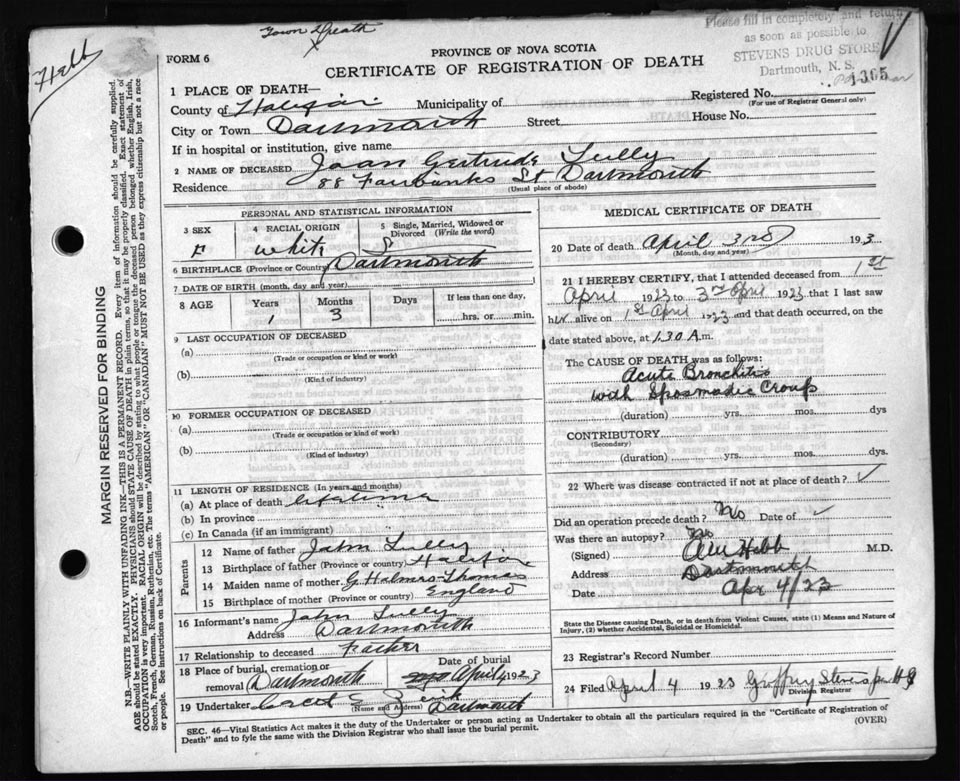 Town Death
Please fill in completely and return
as soon as possible to
STEVENS DRUG STORE
Dartmouth, N. S.
1365
Hebb
FORM 6
PROVINCE OF NOVA SCOTIA
CERTIFICATE OF REGISTRATION OF DEATH
MARGIN RESERVED FOR BINDING
N.B.—WRITE PLAINLY WITH UNFADING INK—THIS IS A PERMANENT RECORD. Every item of information should be carefully supplied.
AGE should be stated EXACTLY. PHYSICIANS should STATE CAUSE OF DEATH in plain terms, so that it may be properly classified. Exact statement of
OCCUPATION is very important. RACIAL ORIGIN will be described by stating to what people or tongue the deceased person belonged whether English, Irish,
Scotch, French, German, Russian, Ruthenian, etc. The terms "AMERICAN" OR "CANADIAN" MUST NOT BE USED as they express citizenship but not a race
or people. See instructions on back of Certificate.
1 PLACE OF DEATH—
County of Halifax Municipality of
Registered No.
(For use of Registrar General only)
City or Town Dartmouth Street House No.
If in hospital or institution, give name
2 NAME OF DECEASED Joan Gertrude Lully
Residence 88 Fairbanks St Dartmouth
(Usual place of abode)
PERSONAL AND STATISTICAL INFORMATION
3 SEX F
4 RACIAL ORIGIN White
5 Single, Married, Widowed or Divorced (Write the word) S
6 BIRTHPLACE (Province or Country) Dartmouth
7 DATE OF BIRTH (month, day and year)
8 AGE Years Months Days If less than one day,
1 3 hrs. or min.
9 LAST OCCUPATION OF DECEASED
(a)
(Trade or occupation or kind or work)
(b)
(Kind of industry)
10 FORMER OCCUPATION OF DECEASED
(a)
(Trade or occupation or kind of work)
(b)
(Kind of industry)
11 LENGTH OF RESIDENCE (In years and months)
(a) At place of death lifetime
(b) In province
(c) In Canada (if an immigrant)
Parents
12 Name of father John Lully
13 Birthplace of father (Province or country) Halifax
14 Maiden name of mother G. Thomas
15 Birthplace of mother (Province or country) England
16 Informant's name John Lully
Address Dartmouth
17 Relationship to deceased Father
18 Place of burial, cremation or removal Dartmouth
Date of burial April 4 1923
19 Undertaker
(Name and Address) Dartmouth
MEDICAL CERTIFICATE OF DEATH
20 Date of death April 3rd 193
(Month, day and year)
21 I HEREBY CERTIFY, that I attended deceased from 1st
April 1923 to 3rd April 1923 that I last saw
her alive on 1st April 1923 and that death occurred, on
date stated above, at 1.30 A.m.
The CAUSE OF DEATH was as follows:
Acute Bronchitis
with Spasmodic Croup
(duration) yrs. mos. dys
CONTRIBUTORY
(Secondary)
(duration) yrs. mos. dys.
22 Where was disease contracted if not at place of death? ✓
Did an operation precede death? No Date of ✓
Was there an autopsy? No
(Signed) Hebb M.D.
Address Dartmouth
Date Apr 4/23
State the Disease causing Death, or in death from Violent Causes, state (1) Means and Nature of
Injury, (2) whether Accidental, Suicidal or Homicidal.
23 Registrar's Record Number
24 Filed April 4 1923 Stevens
Division Registrar
SEC. 46—Vital Statistics Act makes it the duty of the Undertaker or person acting as Undertaker to obtain all the particulars required in the "Certificate of Registration of
Death" and to fyle the same with the Division Registrar who shall issue the burial permit. (OVER)